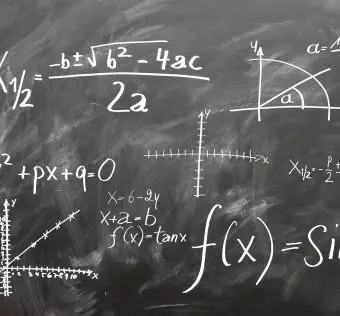 X1/2 = -b±√b²-4ac / 2a
y
a=
a
y
x
² +px+q=0
X1/2=-p/2±
x=6-2y
x+a=b
f(x)=tanx
y
x
f(x)=Si